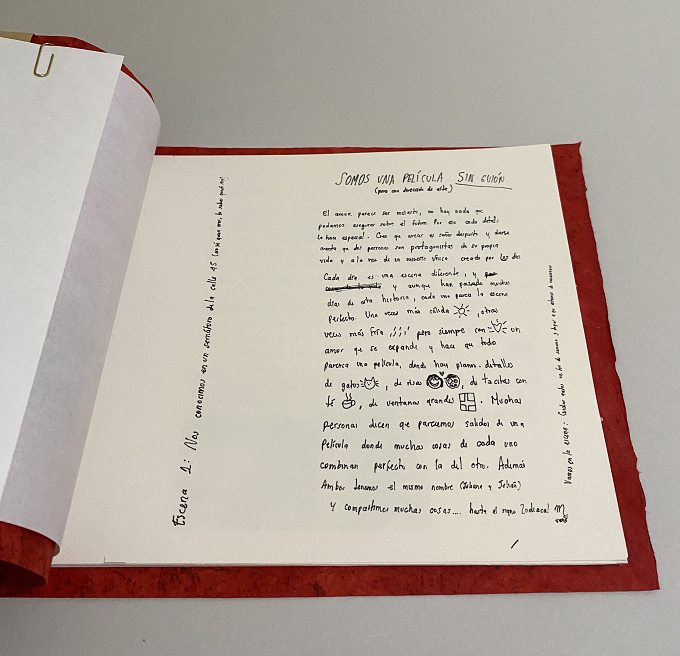 SOMOS UNA PELÍCULA SIN GUIÓN
(pero con dirección de arte)
El amor parece ser incierto, no hay nada que
podamos asegurar sobre el futuro. Por eso cada detalle
lo hace especial. Creo que amar es soñar despierto y darse
cuenta que dos personas son protagonistas de su propia
vida y a la vez de un universo único creado por los dos
Cada día es una escena diferente, y
y aunque han pasado muchos
días de esta historia, cada uno parece la escena
perfecta. Una veces más cálida, otras
veces más fría pero siempre con un
amor que se expande y hace que todo
parezca una película, donde hay planos detalles
de gatos, de risas, de tacitas con
té, de ventanas grandes. Muchas
personas dicen que parecemos salidos de una
Película donde muchas cosas de cada uno
combinan perfecto con la del otro. Además
Ambos tenemos el mismo nombre
Y compartimos muchas cosas.... hasta el signo Zodiacal
Escena 1: Nos conocimos en un semáforo de la calle 45